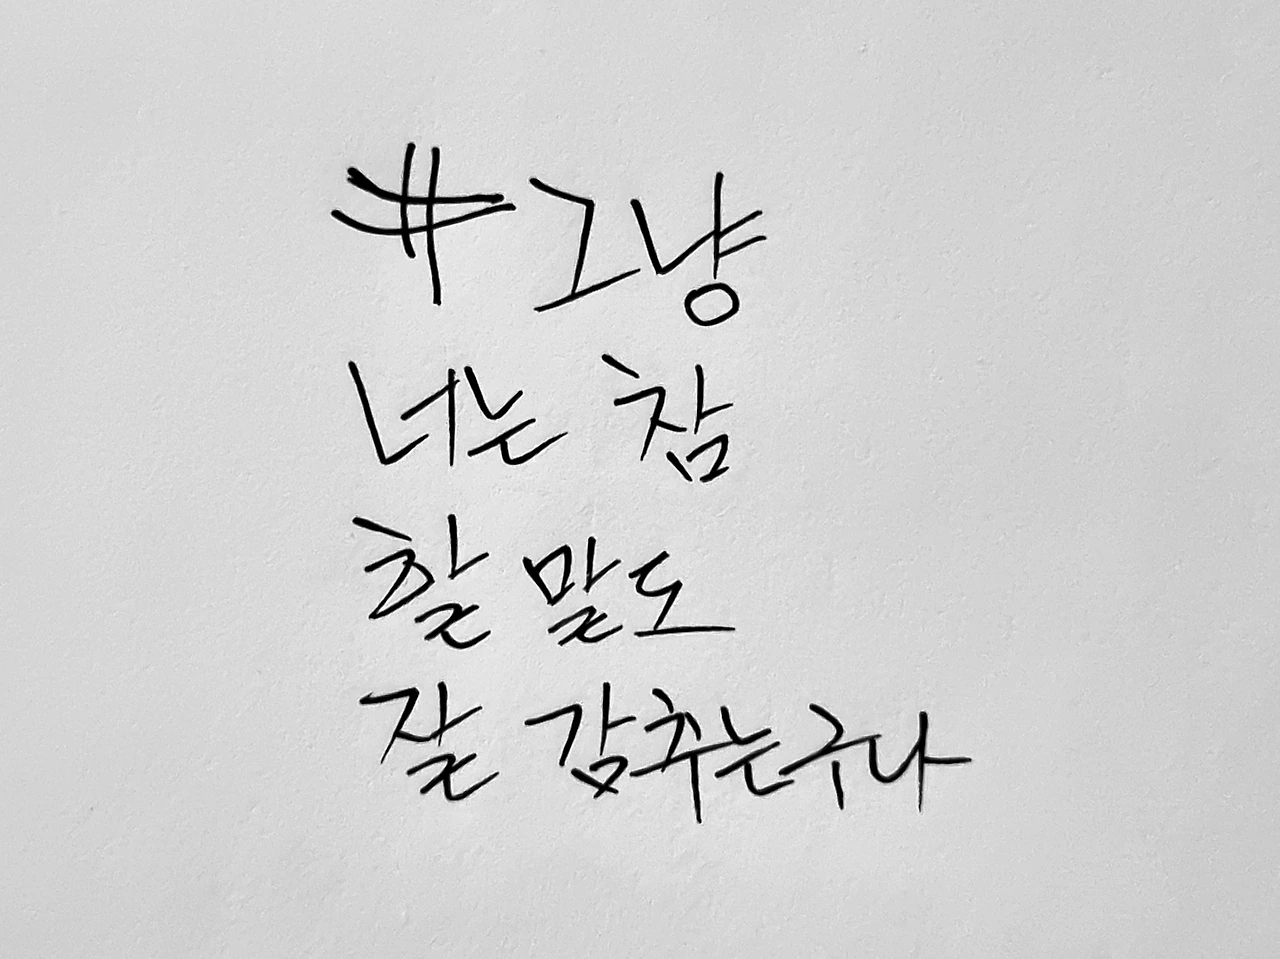 #그냥
너는 참
할 말도
잘 감추는구나